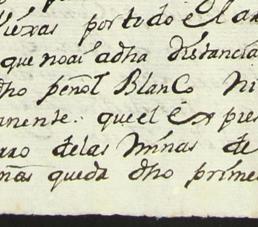 viexas por todo el a
que no ai a dha distancia
dho peñol Blanco ni
anente. que el Expres
rao de las Minas de
nas queda dho prime